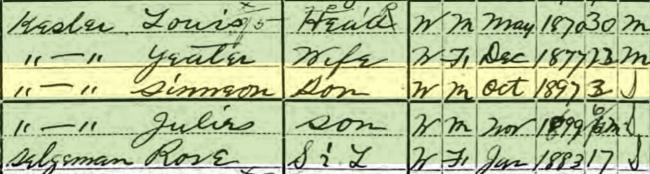 Kesler Louis Head W M May 1870 30 M
"—" Yeater Wife W F Dec 1877 23 M
"—" Simmeon Son W M Oct 1897 3 S
"—" Julius Son W M Nov 1899 6/12 S
Selgeman Rose S i L W F Jan 1883 17 S